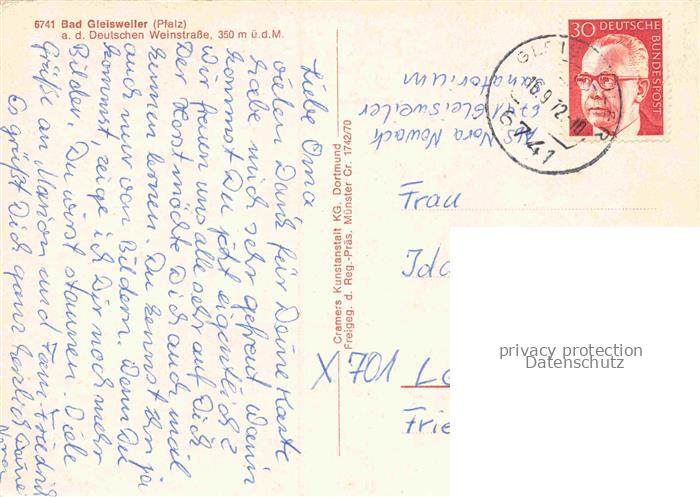 6741 Bad Gleisweiler (Pfalz)
a. d. Deutschen Weinstraße, 350 m ü.d.M.
Liebe Oma
vielen Dank für Deine Karte
habe mich sehr gefreut. Wann
kommst Du jetzt eigentlich?
Wir freuen uns alle sehr auf Dich
Der Horst möchte Dich auch mal
kennen lernen. Du kennst ihn ja
auch nur von Bildern. Wenn Du
kommst, zeige ich Dir noch mehr
Bilder. Du wirst staunen. Viele
Grüße an Marion und Fam. Friedrich
Es grüßt Dich ganz herzlich Deine
Nora
Cramers Kunstanstalt KG. Dortmund
Freigeg. d. Reg.-Präs. Münster Cr. 1742/70
Abs. Nora Nowack
6741 Gleisweiler
Sanatorium
30 DEUTSCHE
BUNDESPOST
16.9.72-10
6741
Frau
Ida
X 701
Frie
privacy protection
Datenschutz